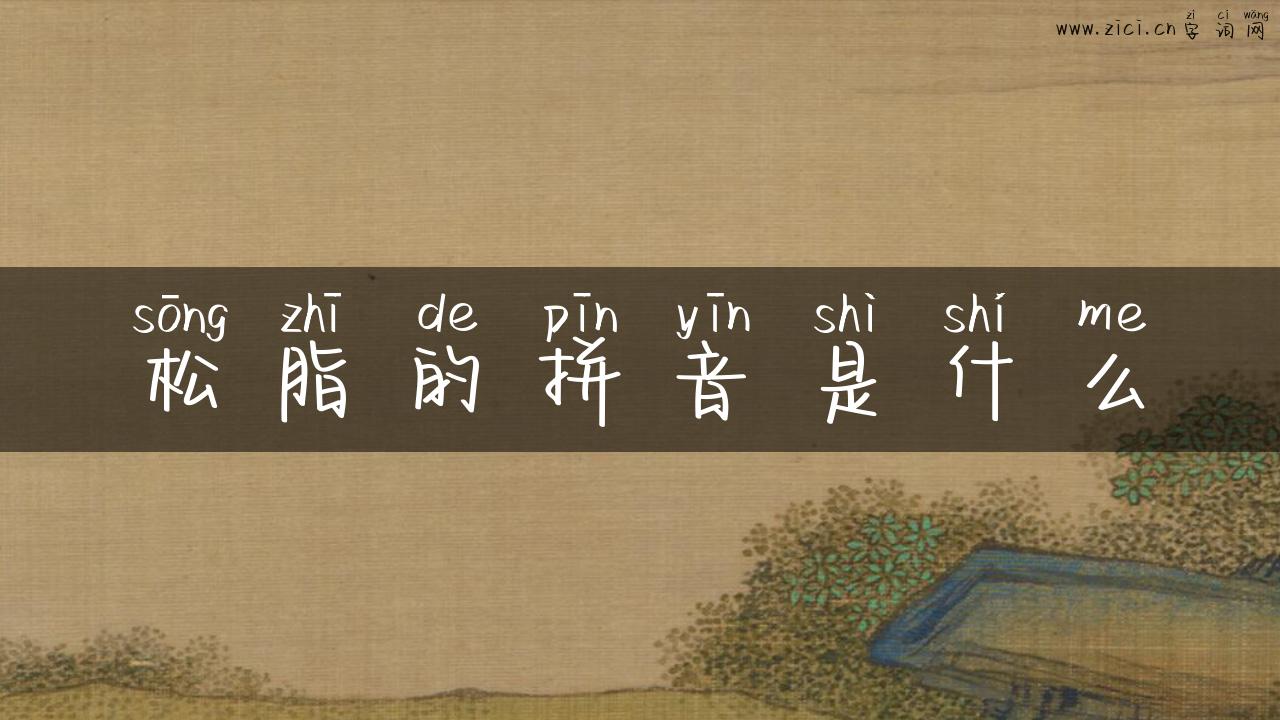 zì cí wǎng
www.zici.cn 字词网
sōng zhī de pīn yīn shì shí me
松脂的拼音是什么